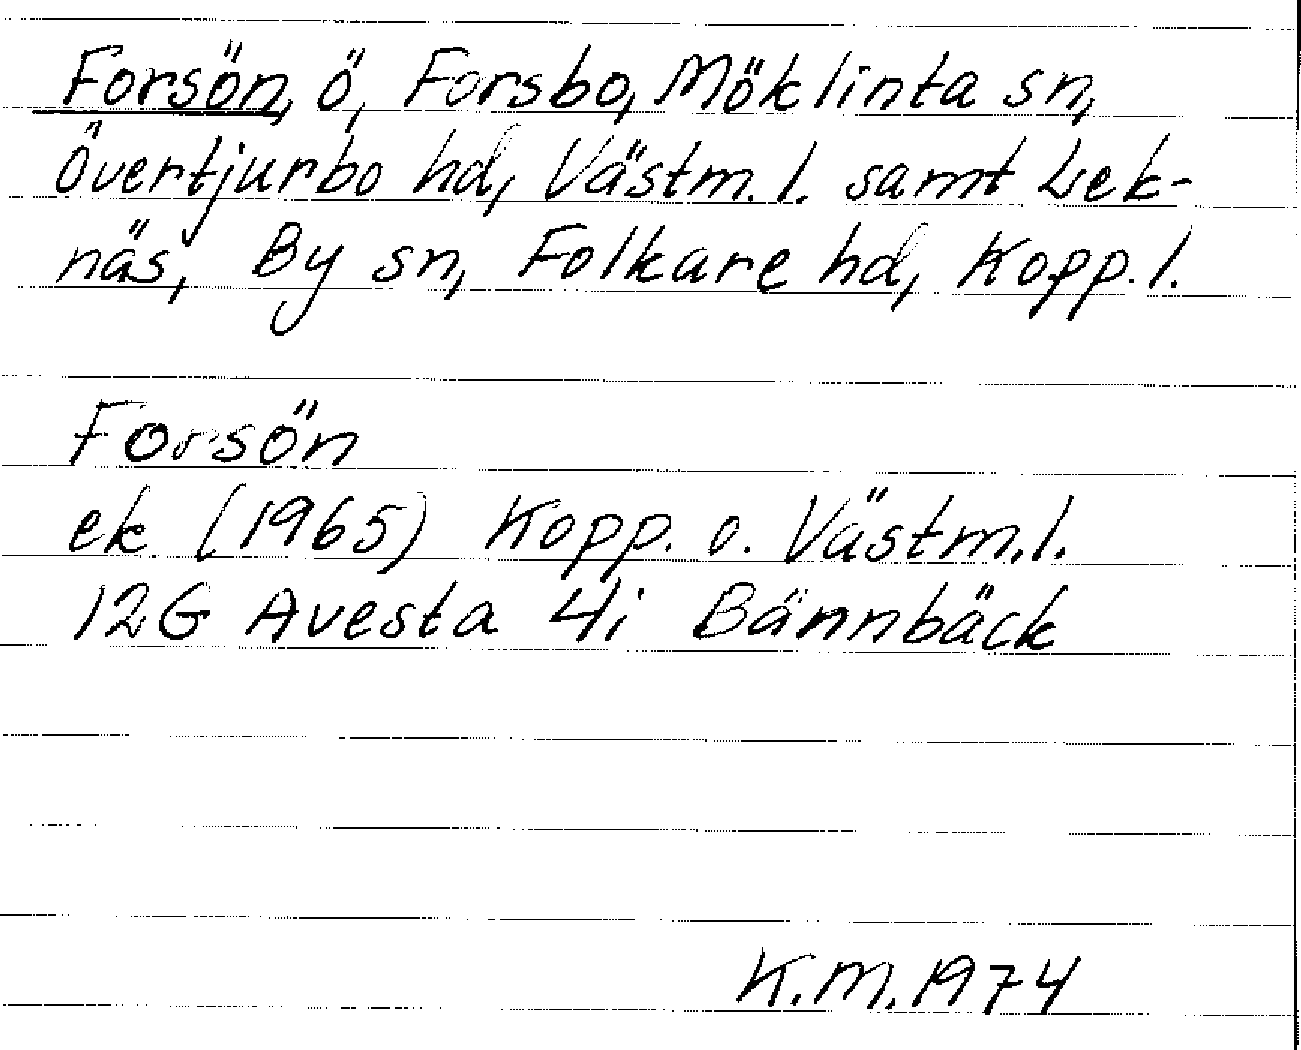 Forsön, ö, Forsbo, Möklinta sn,
Övertjurbo hd, Västm. l. samt Lek-
näs, By sn, Folkare hd, Kopp. l.
Forsön
ek (1965) Kopp. o. Västm. l.
12G Avesta 4i Bännbäck
K.M. 1974